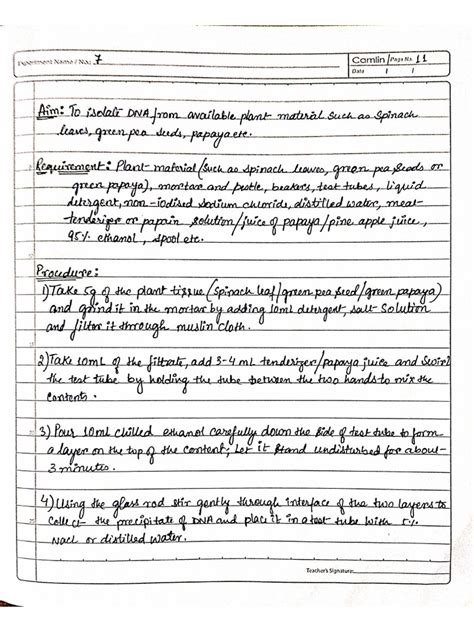 Experiment Name / No.: 7
Camlin Page No. 11
Date / /
Aim: To isolate DNA from available plant material such as spinach
leaves, green pea seeds, papaya etc.
Requirement: Plant-material (such as spinach leaves, green pea seeds or
green papaya), mortar and pestle, beakers, test tubes, liquid
detergent, non-iodised sodium chloride, distilled water, meat-
tenderizer or papain solution/juice of papaya/pine apple juice,
95% ethanol, spool etc.
Procedure:
1) Take 5g of the plant tissue (spinach leaf/green pea seed/green papaya)
and grind it in the mortar by adding 10ml detergent, salt-solution
and filter it through muslin cloth.
2) Take 10mL of the filtrate, add 3-4 mL tenderizer/papaya juice and swirl
the test tube by holding the tube between the two hands to mix the
contents.
3) Pour 10ml chilled ethanol carefully down the side of test tube to form
a layer on the top of the content; let it stand undisturbed for about-
3 minutes.
4) Using the glass rod stir gently through interface of the two layers to
collect- the precipitate of DNA and place it in a test tube with 5%
Nacl or distilled water.
Teacher's Signature: